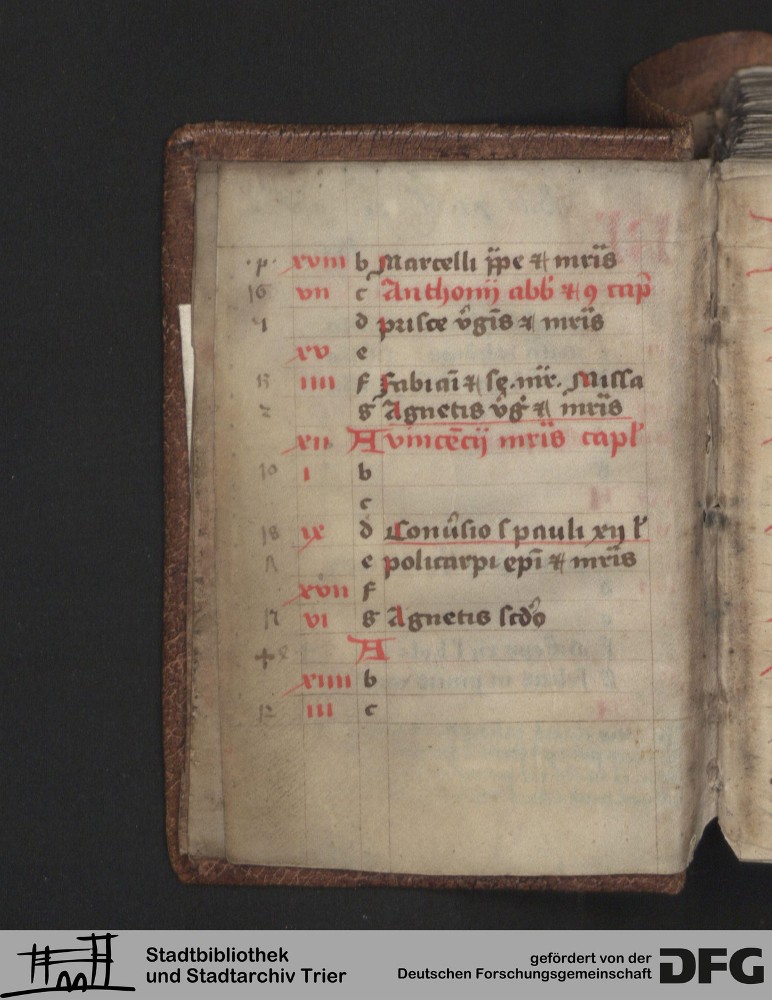 xviii b Marcelli ppe et mris
16 vii c Anthonij abb et 9 cap
d prisce vgis et mris
xv e
13 iiii f Fabiani et se. mr. Missa
2 g Agnetis vg et mris
xii A vincecij mris capl
10 i b
c
18 ix d Conusio s pauli xij l
e policarpi epi et mris
xvii f
17 vi g Agnetis scdo
A
xiiii b
12 iii c
Stadtbibliothek
und Stadtarchiv Trier
gefördert von der
Deutschen Forschungsgemeinschaft
DFG